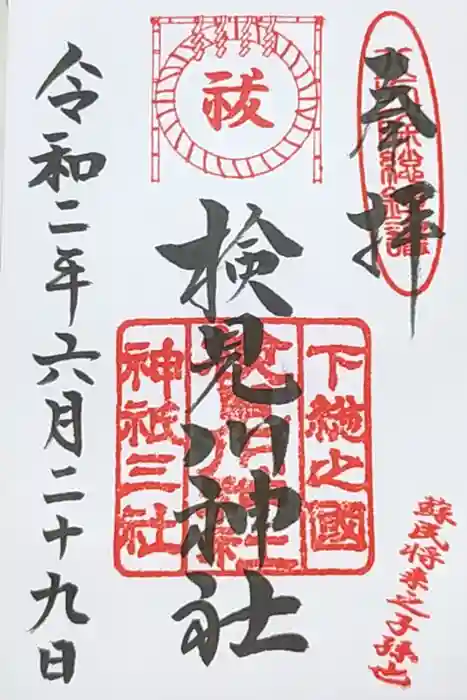 奉拝
蘇民将来之子孫也
祓
検見川神社
下総之國
神祇三社
令和二年六月二十九日